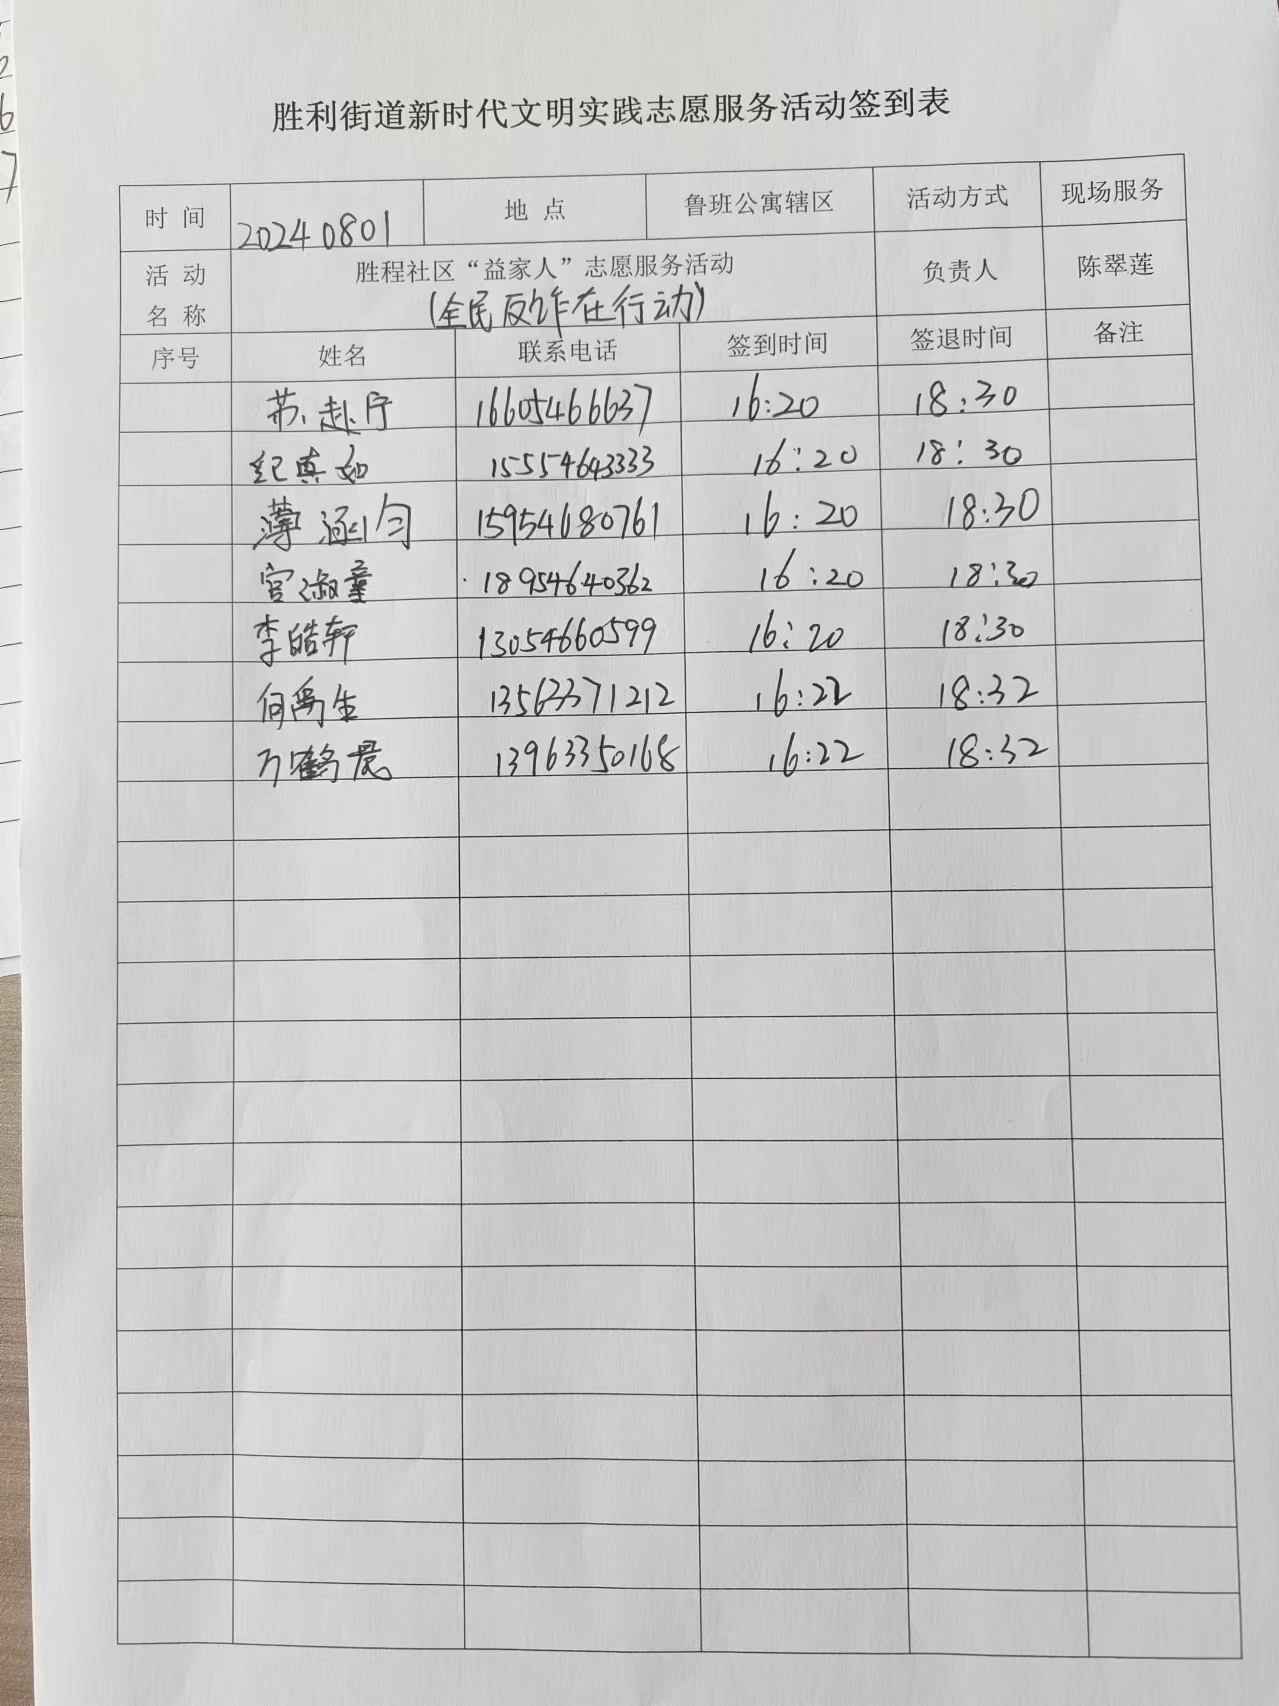 胜利街道新时代文明实践志愿服务活动签到表
时 间 20240801 地 点 鲁班公寓辖区 活动方式 现场服务
活 动 名 称 胜程社区“益家人”志愿服务活动 负责人 陈翠莲
(全民反诈在行动)
序号 姓名 联系电话 签到时间 签退时间 备注
苏赴厅 16605466637 16:20 18:30
纪真如 15554643333 16:20 18:30
薄涵匀 15954680761 16:20 18:30
宫淑童 18954640362 16:20 18:30
李皓轩 13054660599 16:20 18:30
何禹生 13563371212 16:22 18:32
万鹤 13963350168 16:22 18:32